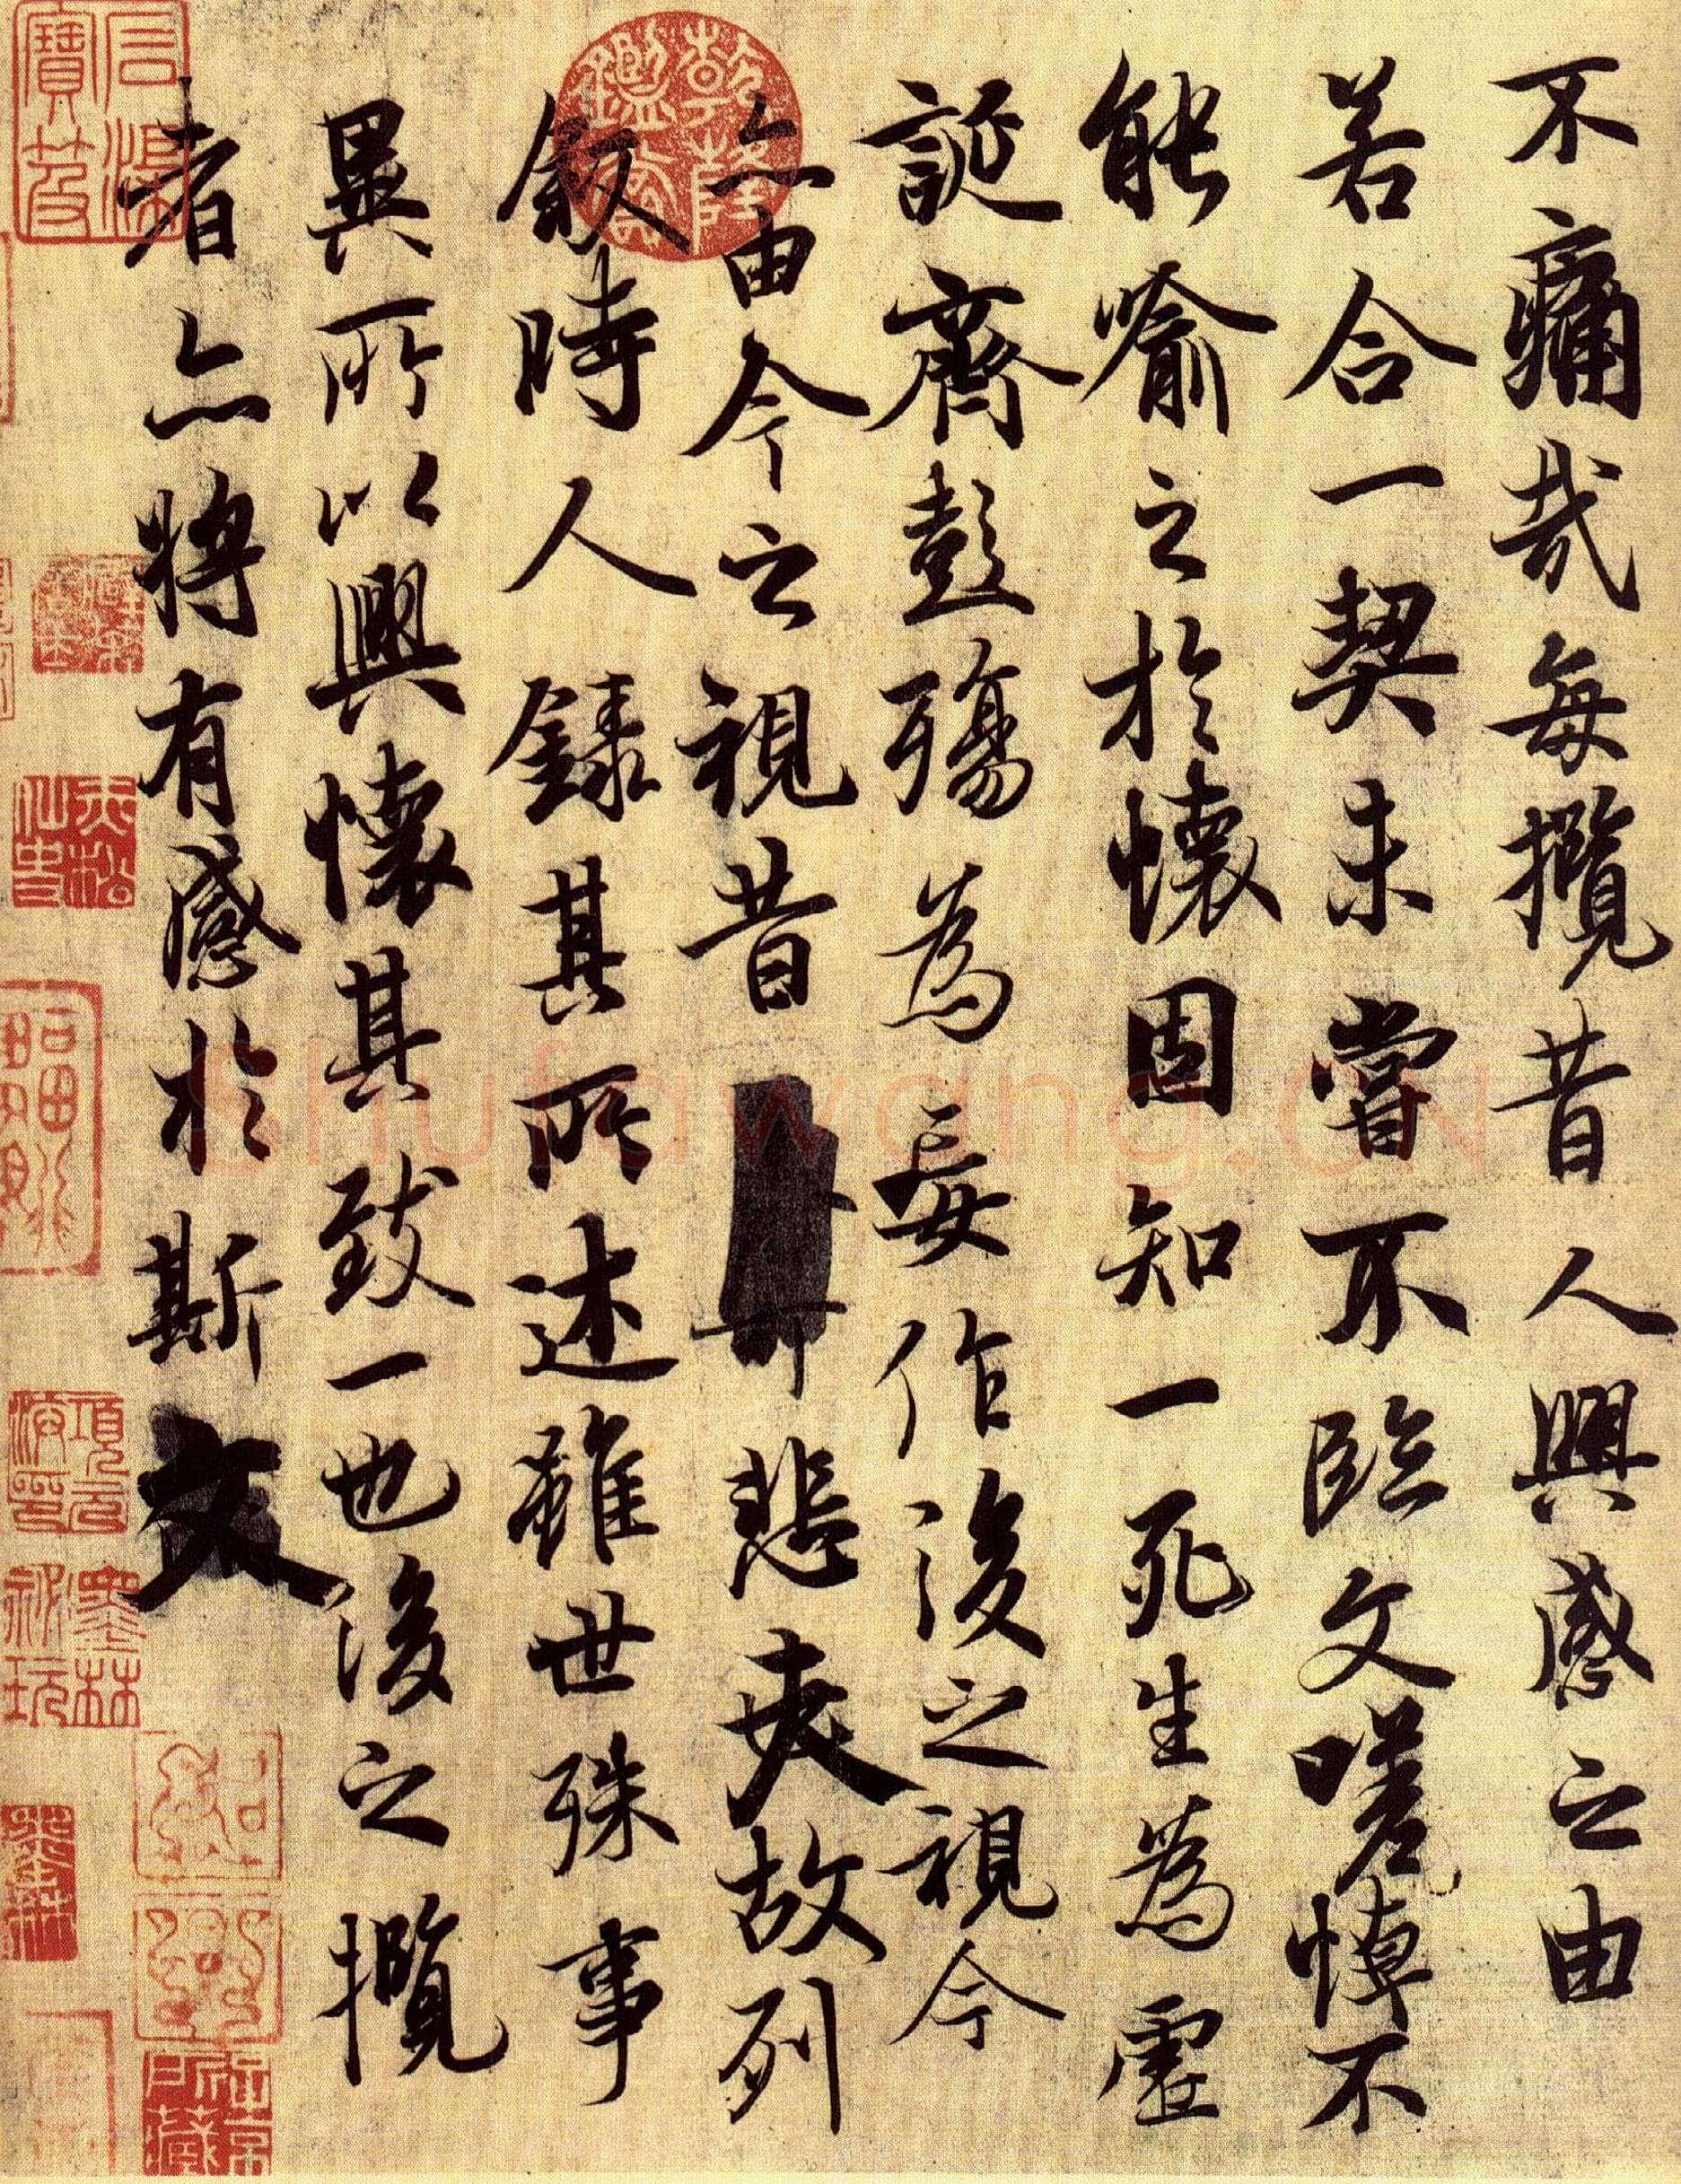 不痛哉每攬昔人興感之由
若合一契未嘗不臨文嗟悼不
能喻之於懷固知一死生為虛
誕齊彭殤為妄作後之視今
亦由今之視昔悲夫故列
敘時人錄其所述雖世殊事
異所以興懷其致一也後之攬
者亦將有感於斯文
乾隆鑑賞
石渠寶笈
項元汴印
墨林祕玩
子京所藏
Shufawang.CN